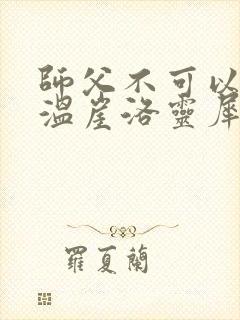 師父不可以
溫崖洛靈犀
羅夏蘭